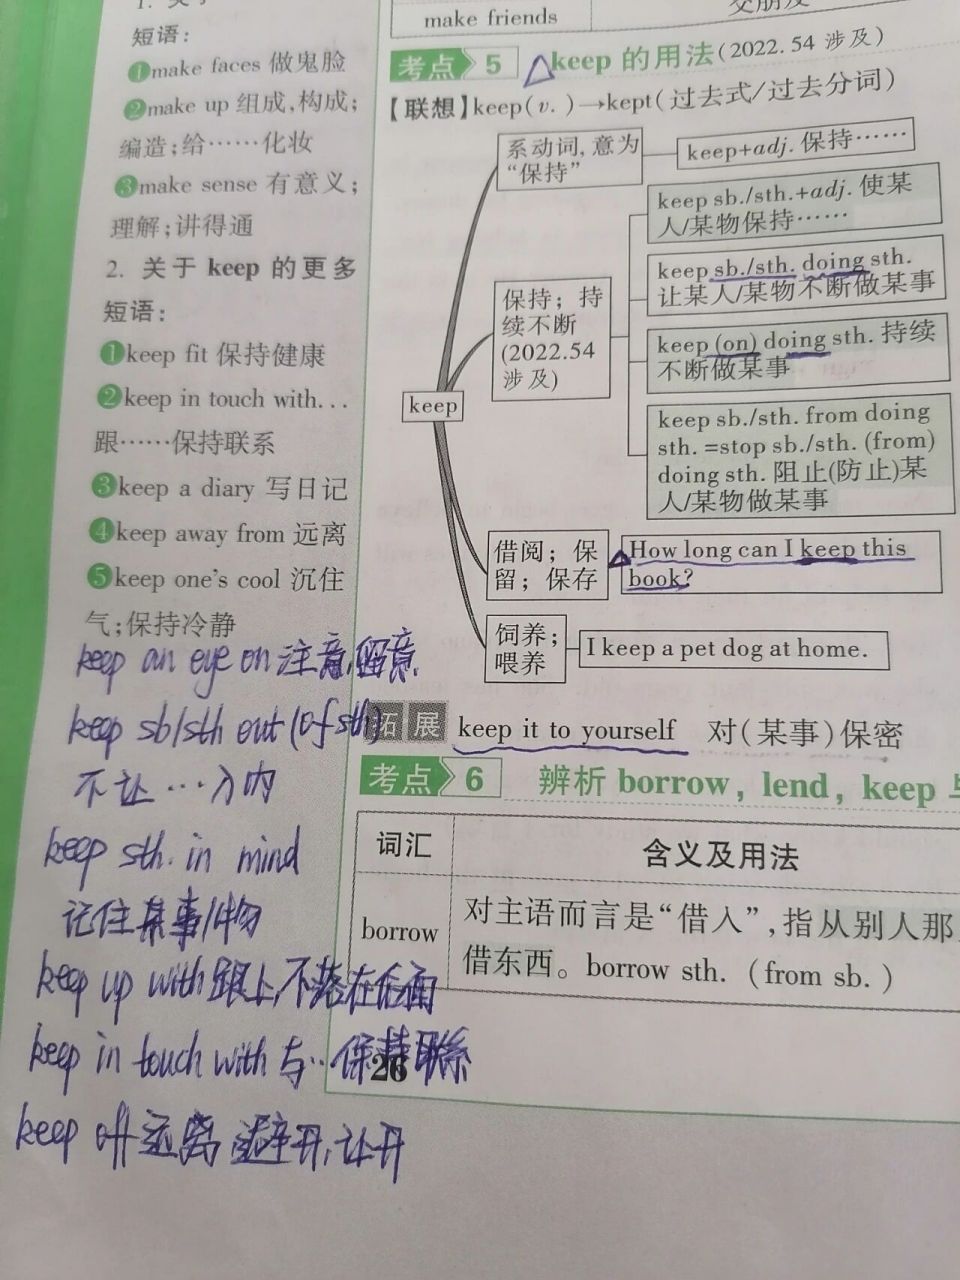 短语：
❶make faces 做鬼脸
❷make up 组成,构成；
编造；给……化妆
❸make sense 有意义；
理解；讲得通
2. 关于 keep 的更多
短语：
❶keep fit 保持健康
❷keep in touch with...
跟……保持联系
❸keep a diary 写日记
❹keep away from 远离
❺keep one's cool 沉住
气；保持冷静
keep an eye on 注意,留意
keep sb/sth out (of sth)
不让…入内
keep sth. in mind
记住某事/物
keep up with 跟上,不落在后面
keep in touch with 与…保持联系
keep off 远离 避开,让开
make friends
交朋友
考点 5 keep 的用法(2022.54 涉及)
【联想】keep(v.)→kept(过去式/过去分词)
keep
系动词, 意为
“保持”
keep+adj. 保持……
保持；持
续不断
(2022.54
涉及)
keep sb./sth.+adj. 使某
人/某物保持……
keep sb./sth. doing sth.
让某人/某物不断做某事
keep (on) doing sth. 持续
不断做某事
keep sb./sth. from doing
sth. =stop sb./sth. (from)
doing sth. 阻止(防止)某
人/某物做某事
借阅；保
留；保存
How long can I keep this
book?
饲养；
喂养
I keep a pet dog at home.
拓展 keep it to yourself 对(某事)保密
考点 6 辨析 borrow, lend, keep
词汇 含义及用法
borrow
对主语而言是“借入”,指从别人那
借东西。borrow sth. (from sb.)
26